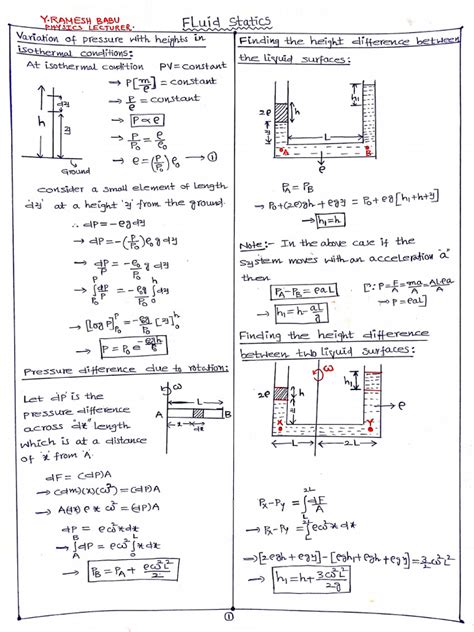 Y.RAMESH BABU
PHYSICS LECTURER.
FLuid Statics
Variation of pressure with heights in
isothermal conditions:
At isothermal condition PV=constant
→ P[m/ρ] = constant
→ P/ρ = constant
→ P∝ρ
→ P/P₀ = ρ/ρ₀
→ ρ = (P/P₀)ρ₀ → ①
h
dy
y
Ground
Consider a small element of length
'dy' at a height 'y' from the ground.
∴ dP = -ρgdy
→ dP = -(P/P₀)ρ₀gdy
→ dP/P = -ρ₀/P₀ g dy
→ ∫[P₀→P] dP/P = -ρ₀g/P₀ ∫[0→h] dy
→ [log P][P₀→P] = -ρ₀g/P₀ [y][0→h]
→ P = P₀ e^(-ρ₀gh/P₀)
Pressure difference due to rotation:
Let dP is the
pressure difference
across 'dx' length
which is at a distance
of 'x' from 'A'.
ω
L
A
B
x
dx
dF = (dP)A
→ (dm)(x)(ω²) = (dP)A
→ A(dx)ρxω² = (dP)A
dP = ρω²xdx
→ ∫[A→B] dP = ρω² ∫[0→L] x dx
→ P_B = P_A + ρω²L²/2
Finding the height difference between
the liquid surfaces:
2ρ
h
y
h₁
L
A
B
ρ
P_A = P_B
→ P₀+(2ρ)gh + ρgy = P₀+ρg[h₁+h+y]
→ h₁=h
Note:- In the above case if the
system moves with an acceleration "a"
then
P_A-P_B = ρaL
[∵ P=F/A=ma/A=ALρa/A
→ P=ρaL]
→ h₁=h-aL/g
Finding the height difference
between two liquid surfaces:
ω
2ρ
h
y
h₁
ρ
X
Y
L
2L
Pₓ-P_y = ∫[L→2L] dF/A
→ Pₓ-P_y = ∫[L→2L] ρω²xdx
→ [2ρgh+ρgy]-[ρgh₁+ρgh+ρgy]=3/2 ρω²L²
→ h₁=h+3ω²L²/2g
①